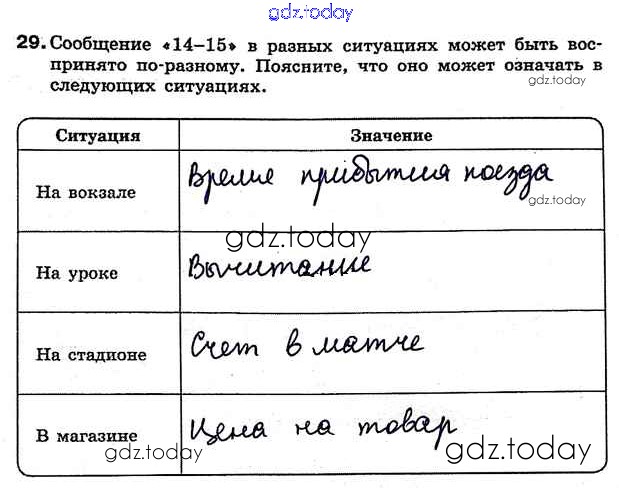 gdz.today
29. Сообщение «14–15» в разных ситуациях может быть вос-
принято по-разному. Поясните, что оно может означать в
gdz.today
следующих ситуациях.
Ситуация Значение
На вокзале Время прибытия поезда
gdz.today
gdz.today
На уроке Вычитание
На стадионе Счет в матче
В магазине Цена на товар
gdz.today gdz.today